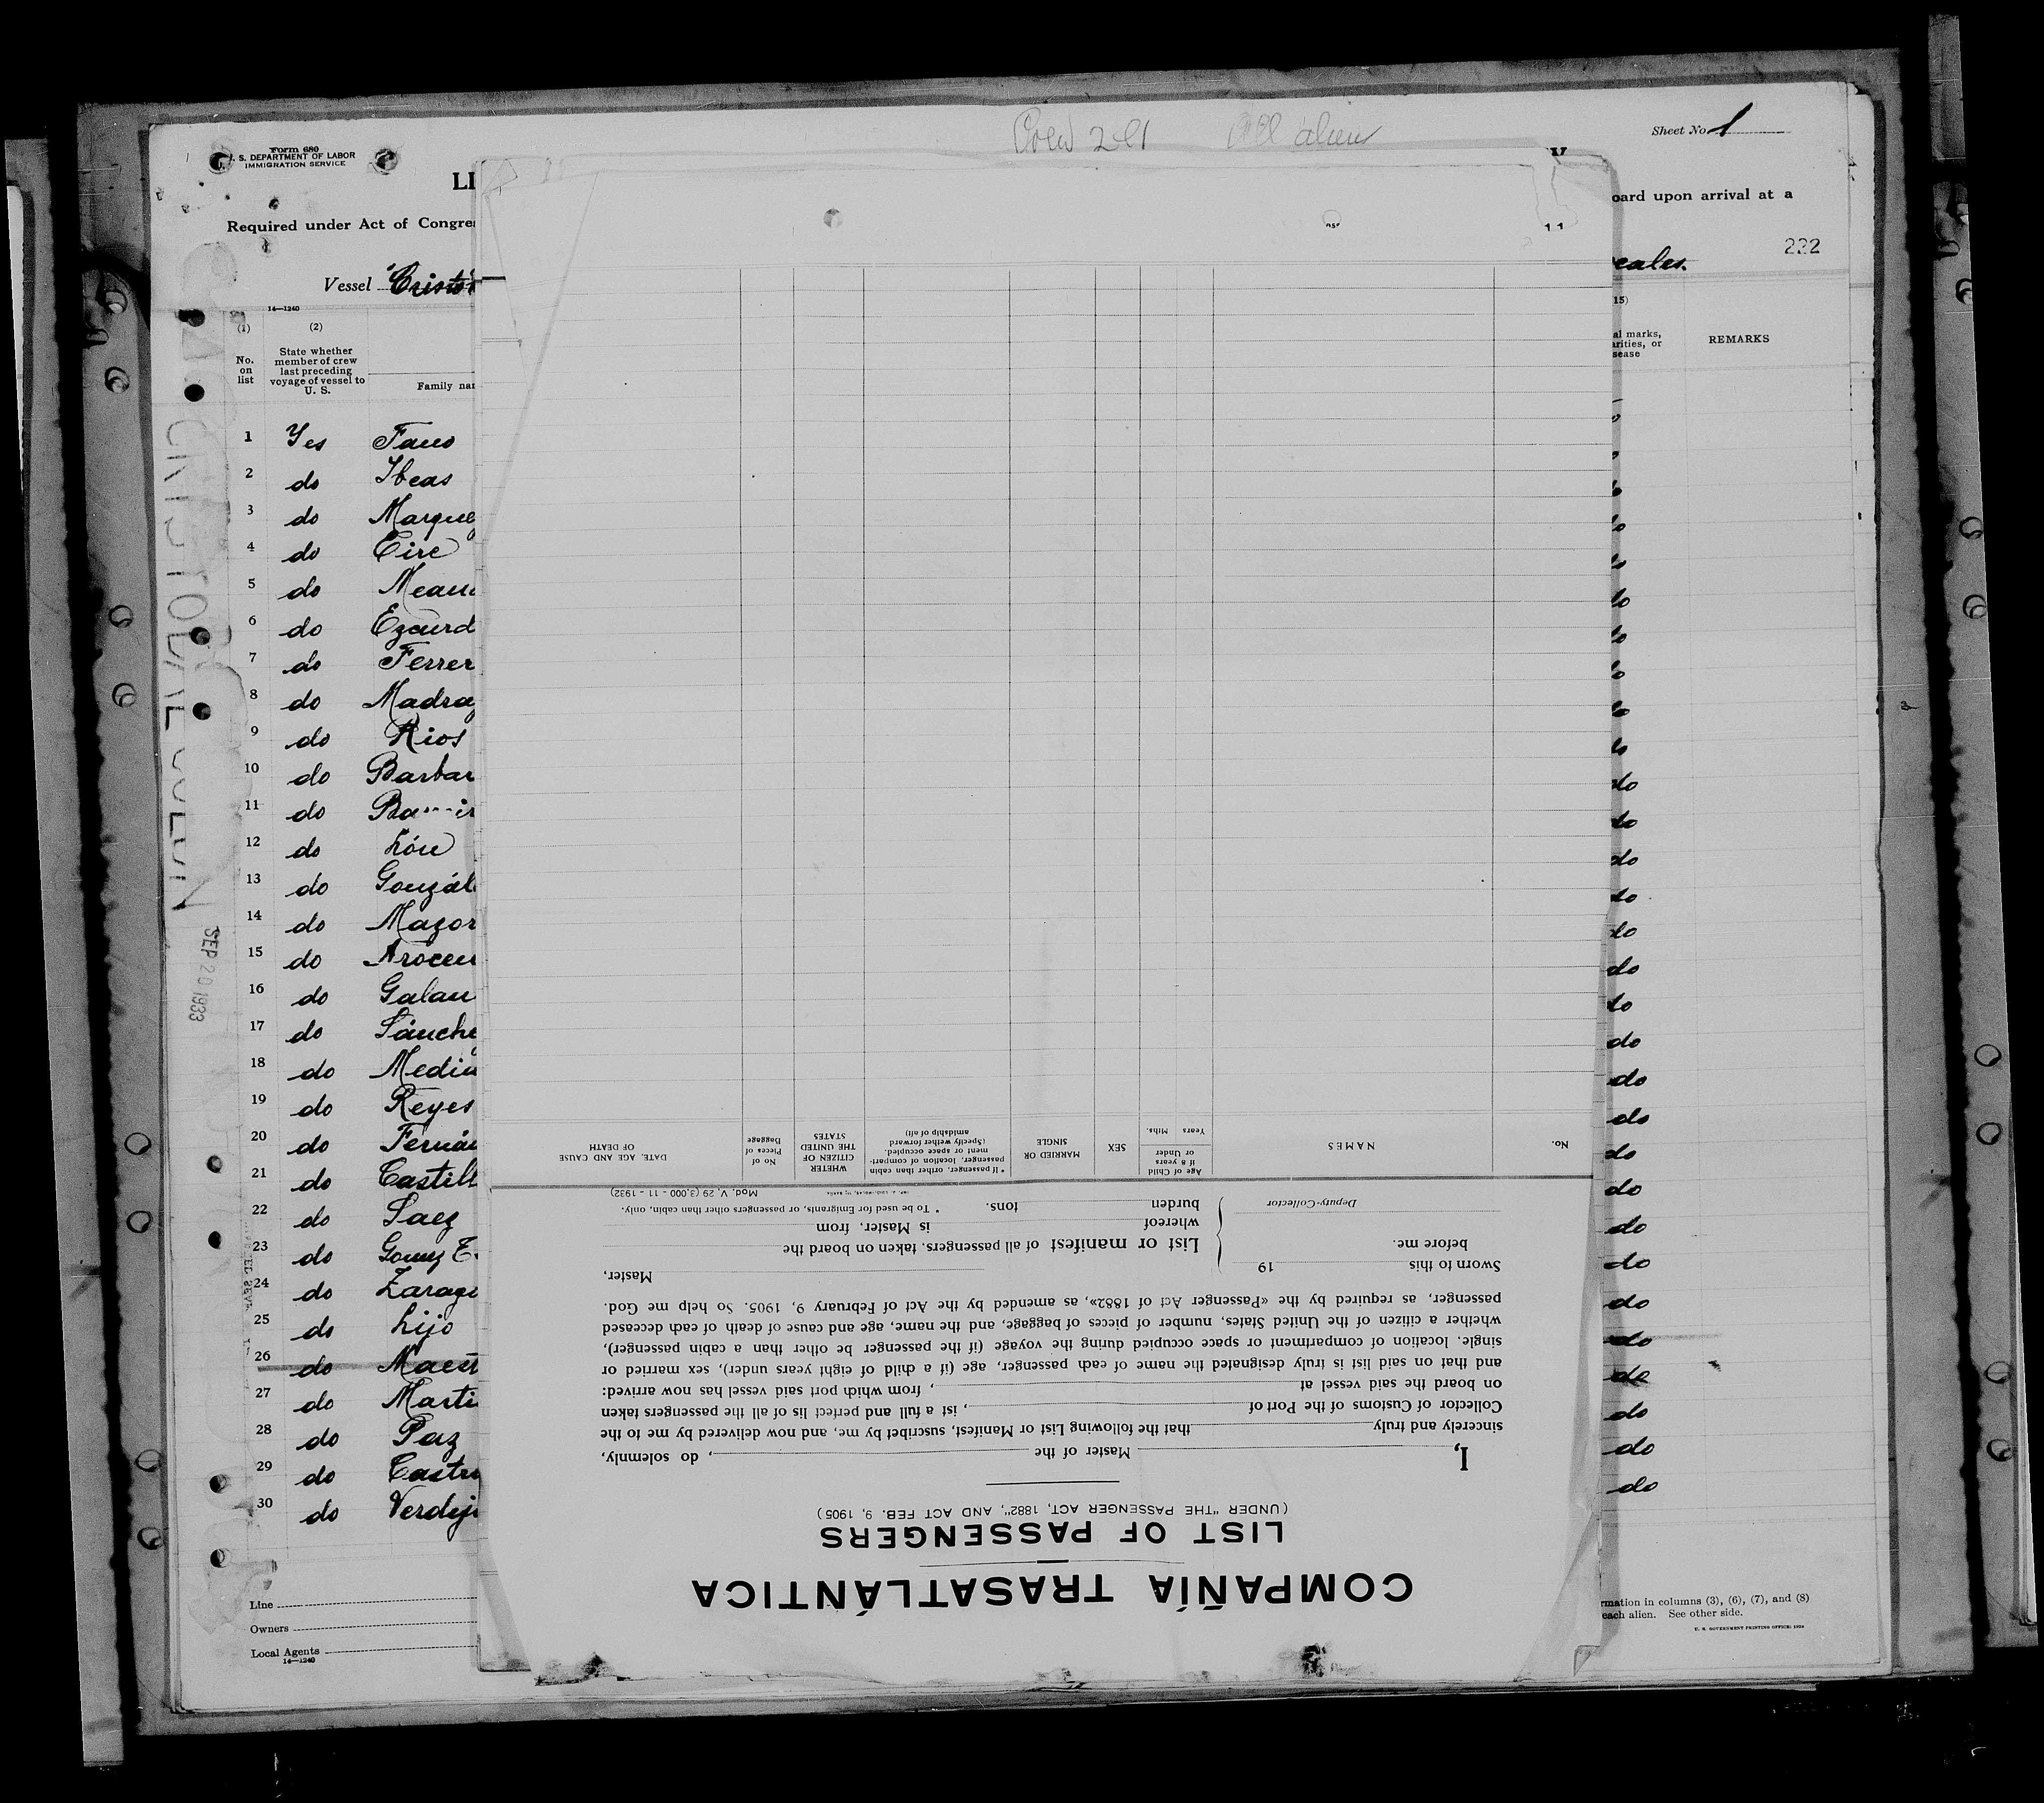 Crew 201 All aliens
Sheet No. 1
Form 680
U. S. DEPARTMENT OF LABOR
IMMIGRATION SERVICE
LI
Required under Act of Congre
oard upon arrival at a
Vessel Cristó
eales.
222
14—1240
(1) (2) 15)
No. on list
State whether member of crew last preceding voyage of vessel to U. S.
Family nam
al marks, arities, or sease
REMARKS
1 Yes Fano
2 do Ibeas do
3 do Marquez do
4 do Eire do
5 do Meau do
6 do Ezcurd do
7 do Ferrer do
8 do Madraz do
9 do Rios do
10 do Barbar do
11 do Ba do
12 do Lóu do
13 do Gonzál do
14 do Mazor do
15 do Arocen do
16 do Galan do
17 do Sánche do
18 do Medin do
19 do Reyes do
20 do Fernán do
21 do Castill do
22 do Saez do
23 do Gomez do
24 do Zarago do
25 do Lijo do
26 do Maest do
27 do Marti do
28 do Paz do
29 do Castro do
30 do Verdej do
CRISTOBAL COLON
SEP 20 1933
Line
Owners
Local Agents
14—1240
rmation in columns (3), (6), (7), and (8)
each alien. See other side.
U. S. GOVERNMENT PRINTING OFFICE: 1926
COMPAÑÍA TRASATLÁNTICA
LIST OF PASSENGERS
(UNDER "THE PASSENGER ACT, 1882", AND ACT FEB. 9, 1905)
I, Master of the , do solemnly,
sincerely and truly that the following List or Manifest, suscribet by me, and now delivered by me to the
Collector of Customs of the Port of , ist a full and perfect lis of all the passengers taken
on board the said vessel at , from which port said vessel has now arrived:
and that on said list is truly designated the name of each passenger, age (if a child of eight years under), sex married or
single, location of compartment or space occupied during the voyage (if the passenger be other than a cabin passenger),
whether a citizen of the United States, number of pieces of baggage, and the name, age and cause of death of each deceased
passenger, as required by the «Passenger Act of 1882», as amended by the Act of February 9, 1905. So help me God.
Master,
Sworn to this 19
before me.
Deputy-Collector
List or manifest of all passengers, taken on board the
whereof is Master, from
burden tons.
* To be used for Emigrants, or passengers other than cabin, only.
Mod. V, 29 (3,000 - 11 - 1932)
No.
NAMES
Age of Child if 8 years or Under
Years Mths.
SEX
MARRIED OR SINGLE
* If passenger, orther than cabin passenger, location of compartment or space occupied. (Specify wether forward amidship of eft)
WHETER CITIZEN OF THE UNITED STATES
No of Pieces of Baggage
DATE, AGE AND CAUSE OF DEATH